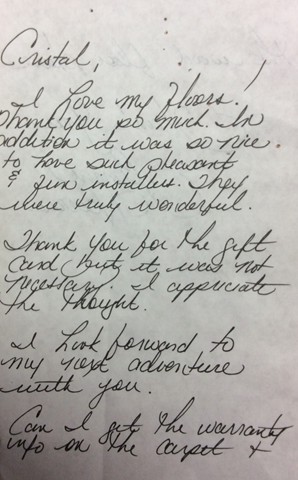 Cristal,
I Love my Floors!
Thank you so much. In
addition it was so nice
to have such pleasant
& fun installers. They
were truly wonderful.
Thank you for the gift
card but it was not
necessary. I appreciate
the thought.
I look forward to
my next adventure
with you.
Can I get the warranty
info on the carpet +